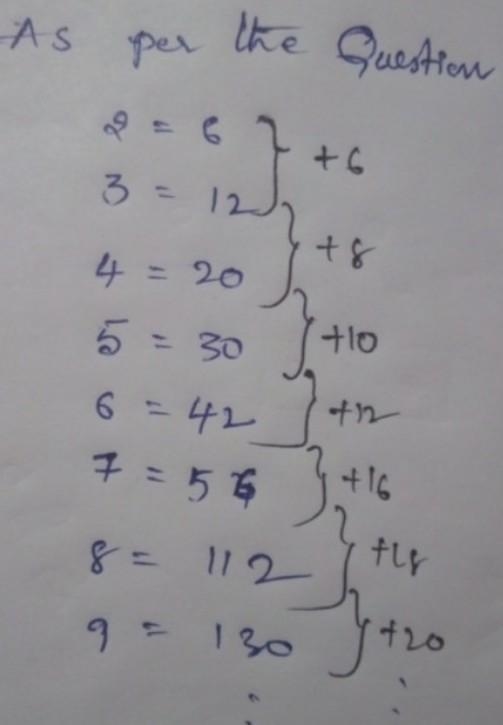 As per the Question
2 = 6
+6
3 = 12
+8
4 = 20
+10
5 = 30
+12
6 = 42
7 = 56
+16
8 = 112
+18
9 = 130
+20